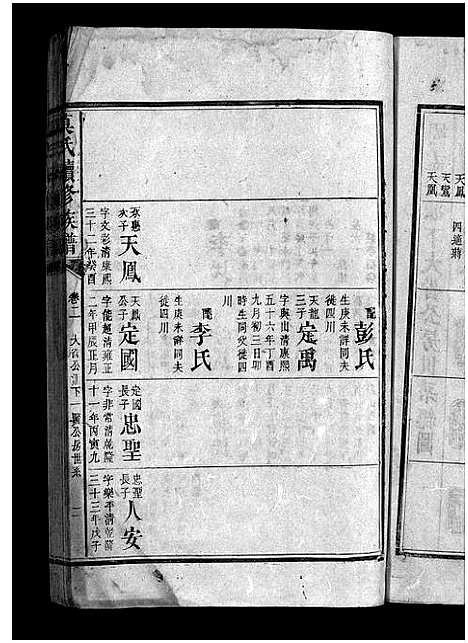 天鳳
天鸞
天鳳
四適蔣
配彭氏
生庚未詳同夫
徙四川
天龍三子定萬
字與山清康熙
五十六年丁酉
九月初三日卯
時生同父徙四
川
配李氏
生庚未詳同夫
徙四川
次子天鳳
字文彩清康熙
三十二年癸酉
天鳳公子定國
字能超清雍正
二年甲辰正月
定國長子忠聖
字非常清乾隆
十一年丙寅九
忠聖長子人安
字樂平清乾隆
三十三年戊子
氏續修族譜
卷二
公下一
公房世系